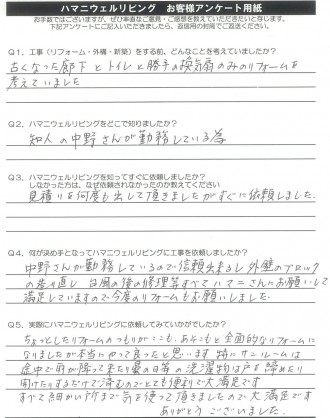 ハマニウェルリビング　お客様アンケート用紙
お手数ではございますが、ぜひ率直なご意見・ご感想を教えていただきたいと存じます。
下記アンケートにご記入いただきましたら、返信用の封筒でご返送ください。
Q1．工事（リフォーム・外構・新築）をする前、どんなことを考えていましたか？
古くなった廊下とトイレと勝手の換気扇のみのリフォームを
考えていました
Q2．ハマニウェルリビングをどこで知りましたか？
知人の中野さんが勤務している為
Q3．ハマニウェルリビングを知ってすぐに依頼しましたか？
しなかった方は、なぜ依頼されなかったのか教えてください
見積りを何度も出して頂きましたがすぐに依頼しました。
Q4．何が決め手となってハマニウェルリビングに工事を依頼しましたか？
中野さんが勤務しているので信頼出来るし外壁のブロック
の造り直し は風の後の修理等すべてハマニさんにお願いして
満足していますので今度のリフォームもお願いしました。
Q5．実際にハマニウェルリビングに依頼してみていかがでしたか？
ちょっとしたリフォームのつもりがここも、あそこもと全面的なリフォームに
なりましたが本当にやって良ったと思います 特にサンルームは
途中で雨が降って来たり曇の日等の洗濯物は戸を締めたり
開けたりするだけで済むのでとても便利で大満足です
すべて細かい所まで気を使って頂きましたので大満足です
ありがとうございました。